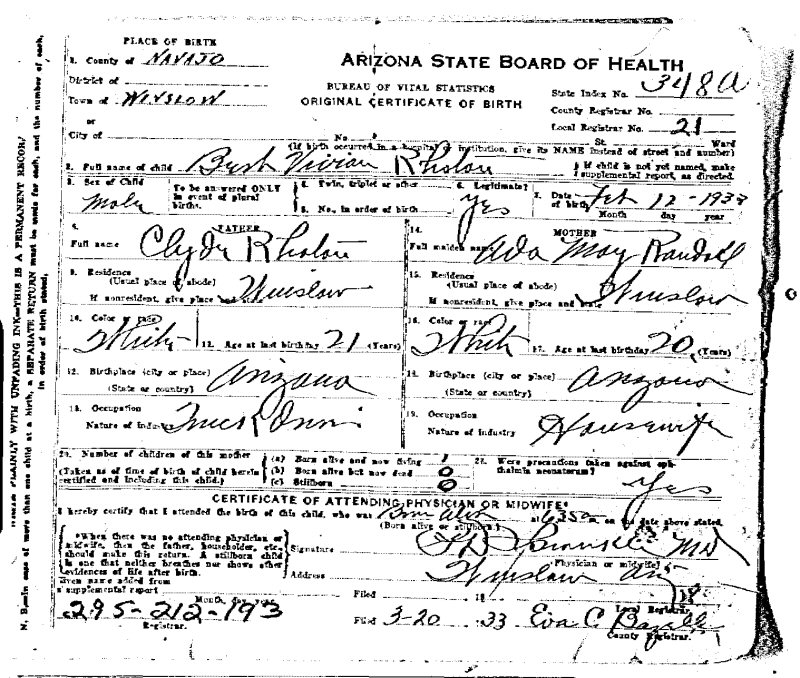 PLACE OF BIRTH
1. County of NAVAJO
District of
Town of WINSLOW
or
City of
ARIZONA STATE BOARD OF HEALTH
BUREAU OF VITAL STATISTICS
ORIGINAL CERTIFICATE OF BIRTH
State Index No. 348a
County Registrar No.
Local Registrar No. 21
No. St. Ward
(If birth occurred in a hospital or institution, give its NAME instead of street and number)
2. Full name of child Vivian Rhoton
If child is not yet named, make supplemental report, as directed.
3. Sex of Child Male
To be answered ONLY in event of plural births.
4. Twin, triplet or other
5. No., in order of birth
6. Legitimate? Yes
7. Date of birth Feb 12 - 1933
Month day year
FATHER
8. Full name Clyde Rhoton
9. Residence (Usual place of abode) Winslow
If nonresident, give place and state
10. Color or race White
11. Age at last birthday 21 (Years)
12. Birthplace (city or place) Arizona
(State or country)
13. Occupation
Nature of Industry Truck
MOTHER
14. Full maiden name Ada May Randall
15. Residence (Usual place of abode) Winslow
If nonresident, give place and state
16. Color or race White
17. Age at last birthday 20 (Years)
18. Birthplace (city or place) Arizona
(State or country)
19. Occupation
Nature of Industry Housewife
20. Number of children of this mother
(Taken as of time of birth of child herein certified and including this child.)
(a) Born alive and now living 1
(b) Born alive but now dead 0
(c) Stillborn 0
21. Were precautions taken against ophthalmia neonatorum? Yes
CERTIFICATE OF ATTENDING PHYSICIAN OR MIDWIFE*
I hereby certify that I attended the birth of this child, who was Born alive at 6:35 a m. on the date above stated.
(Born alive or stillborn.)
*When there was no attending physician or midwife, then the father, householder, etc., should make this return. A stillborn child is one that neither breathes nor shows other evidences of life after birth.
Signature MD
(Physician or midwife)
Address Winslow Ariz
Given name added from a supplemental report
Month day year
295-212-193
Registrar.
Filed 19
Local Registrar.
Filed 3-20 33 Eva C.
County Registrar.
N. B.—In case of more than one child at a birth, a SEPARATE RETURN must be made for each, and the number of each, in order of birth stated.
PLAINLY WITH UNFADING INK—THIS IS A PERMANENT RECORD